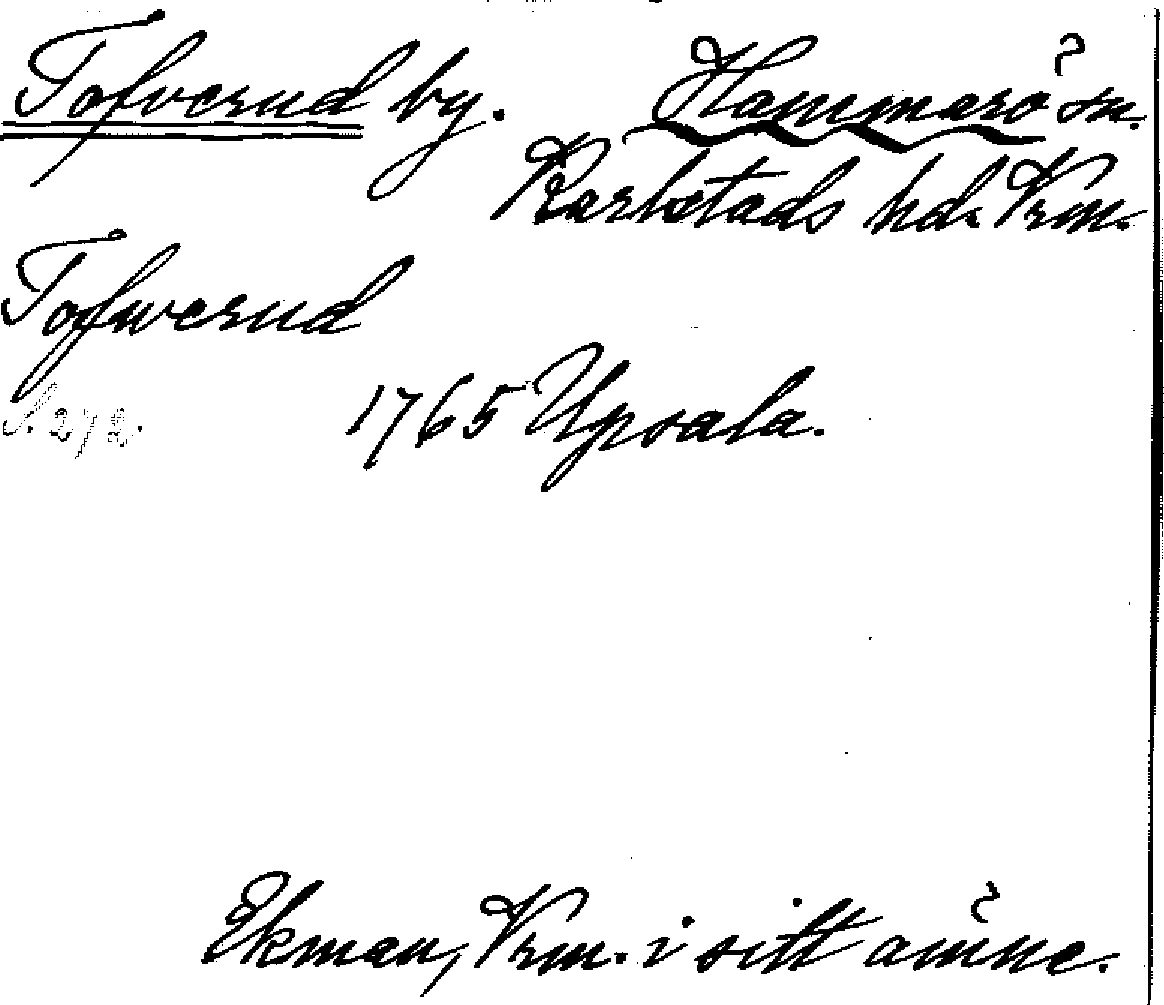 Tofverud by. Hammarö sn.
Karlstads hd. Vrm.
Tofwerud
S. 272. 1765 Upsala.
Ekman, Vrm. i sitt ämne.